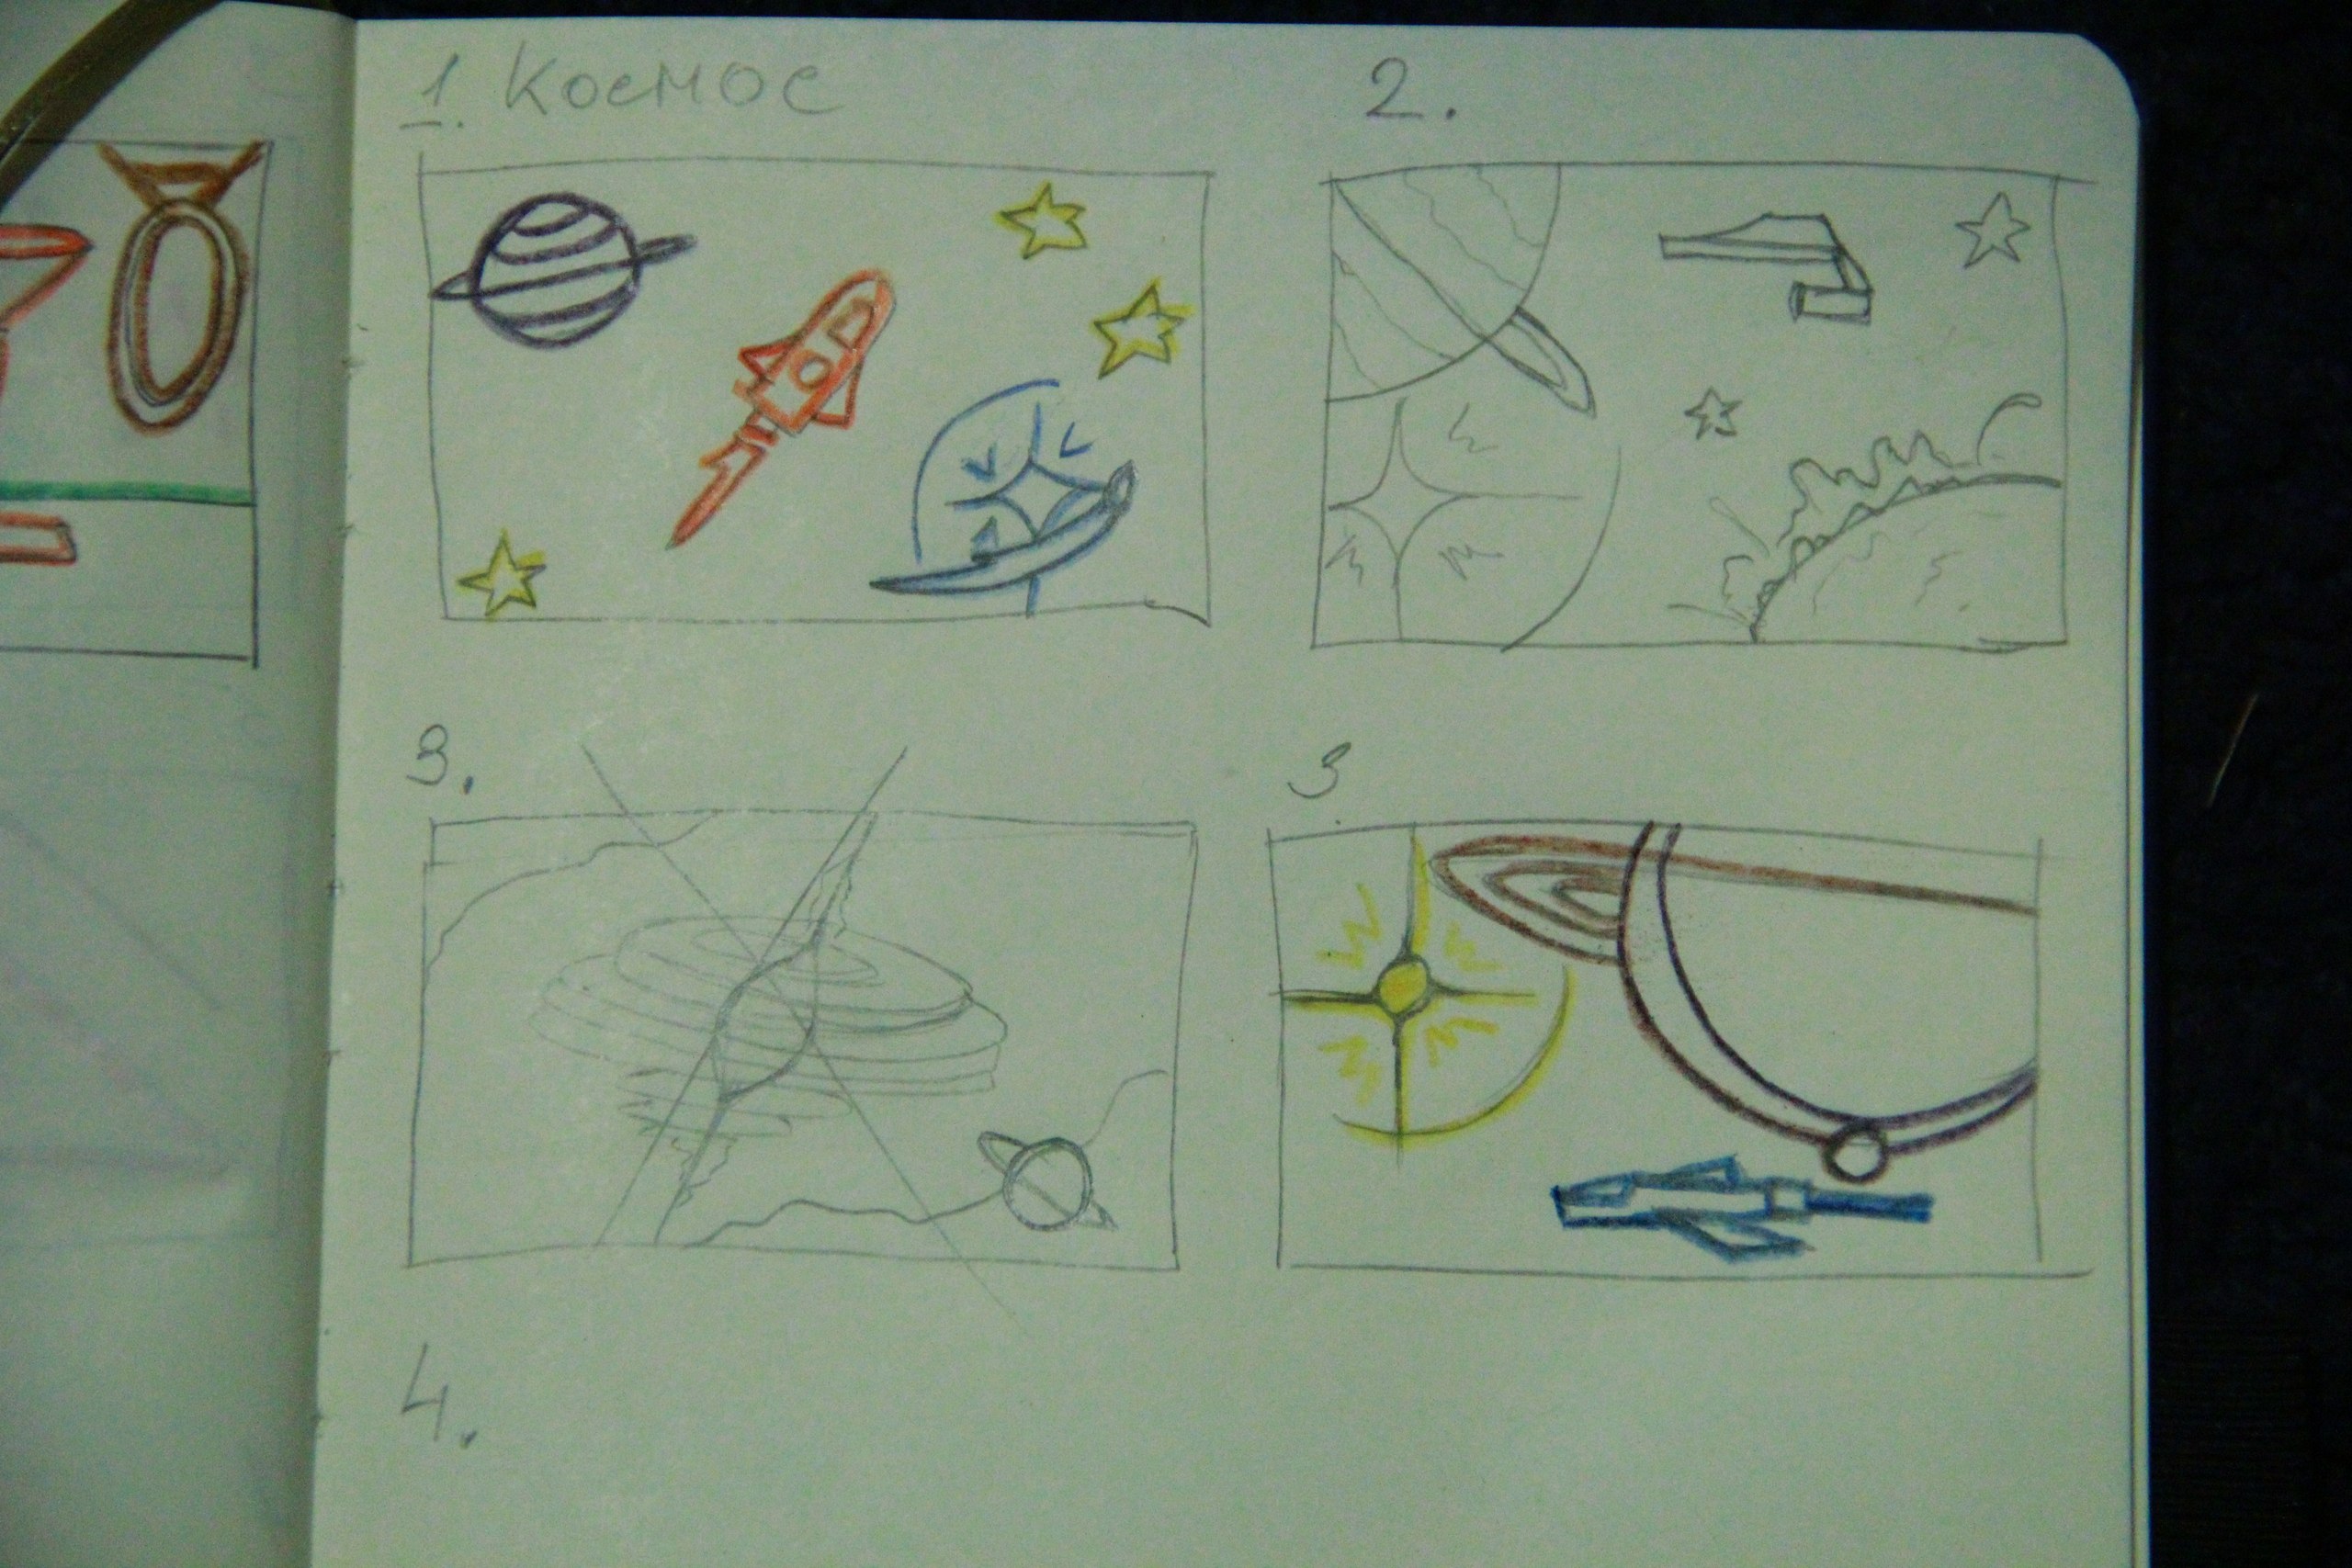 1. Космос
2.
3.
3
4.